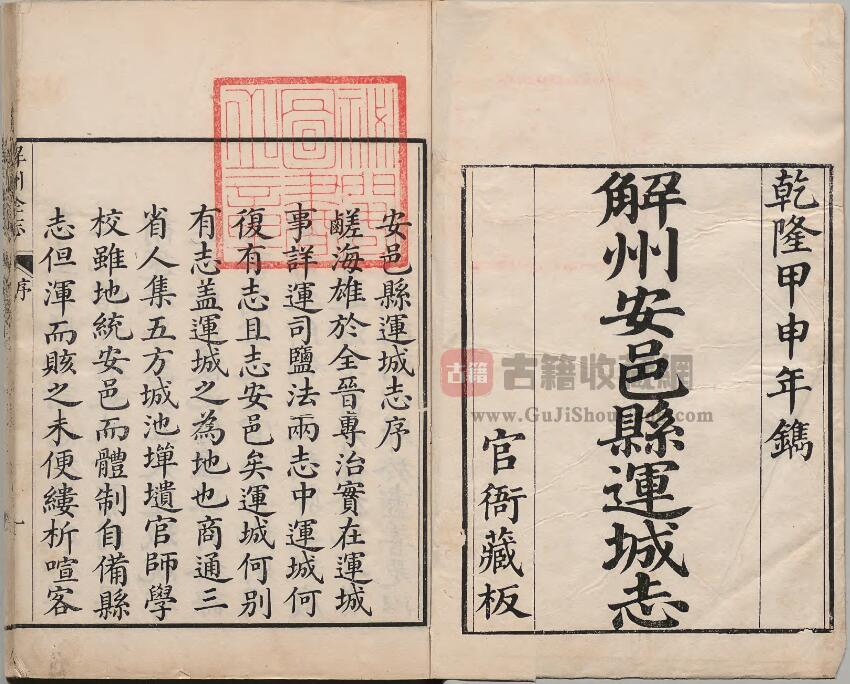 乾隆甲申年鐫
解州安邑縣運城志
官衙藏板
安邑縣運城志序
鹺海雄於全晉專治實在運城
事詳運司鹽法兩志中運城何
復有志且志安邑矣運城何別
有志盖運城之為地也商通三
省人集五方城池墠壝官師學
校雖地統安邑而體制自備縣
志但渾而賅之未便縷析喧客
序
一
古籍
古籍收藏網